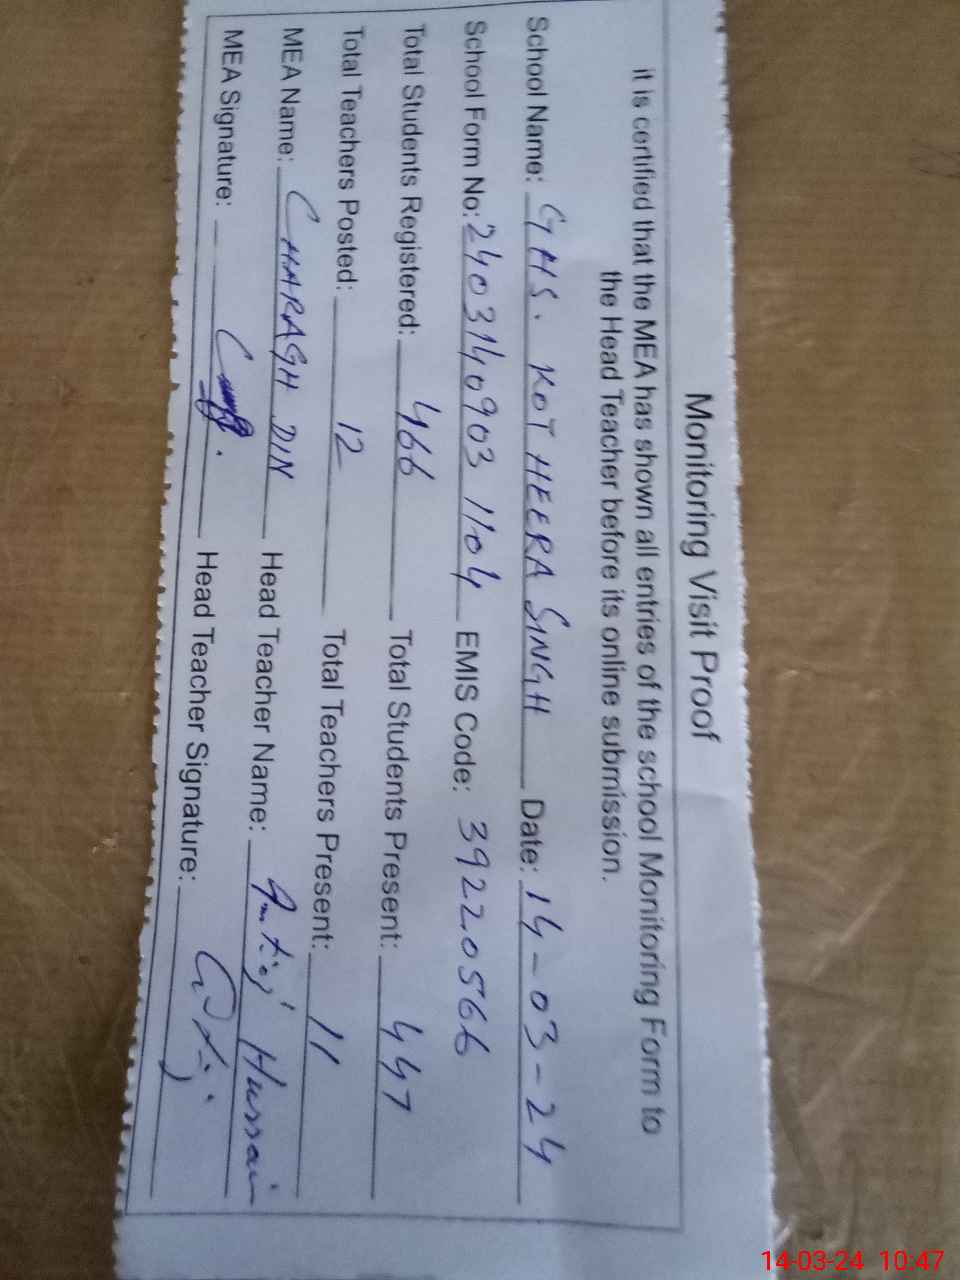 Monitoring Visit Proof
it is certified that the MEA has shown all entries of the school Monitoring Form to
the Head Teacher before its online submission.
School Name: GHS. KOT HEERA SINGH Date: 14-03-24
School Form No: 2403140903 1104 EMIS Code: 39220566
Total Students Registered: 466 Total Students Present: 447
Total Teachers Posted: 12 Total Teachers Present: 11
MEA Name: CHARAGH DIN Head Teacher Name: Hussain
MEA Signature: Head Teacher Signature:
14-03-24 10:47